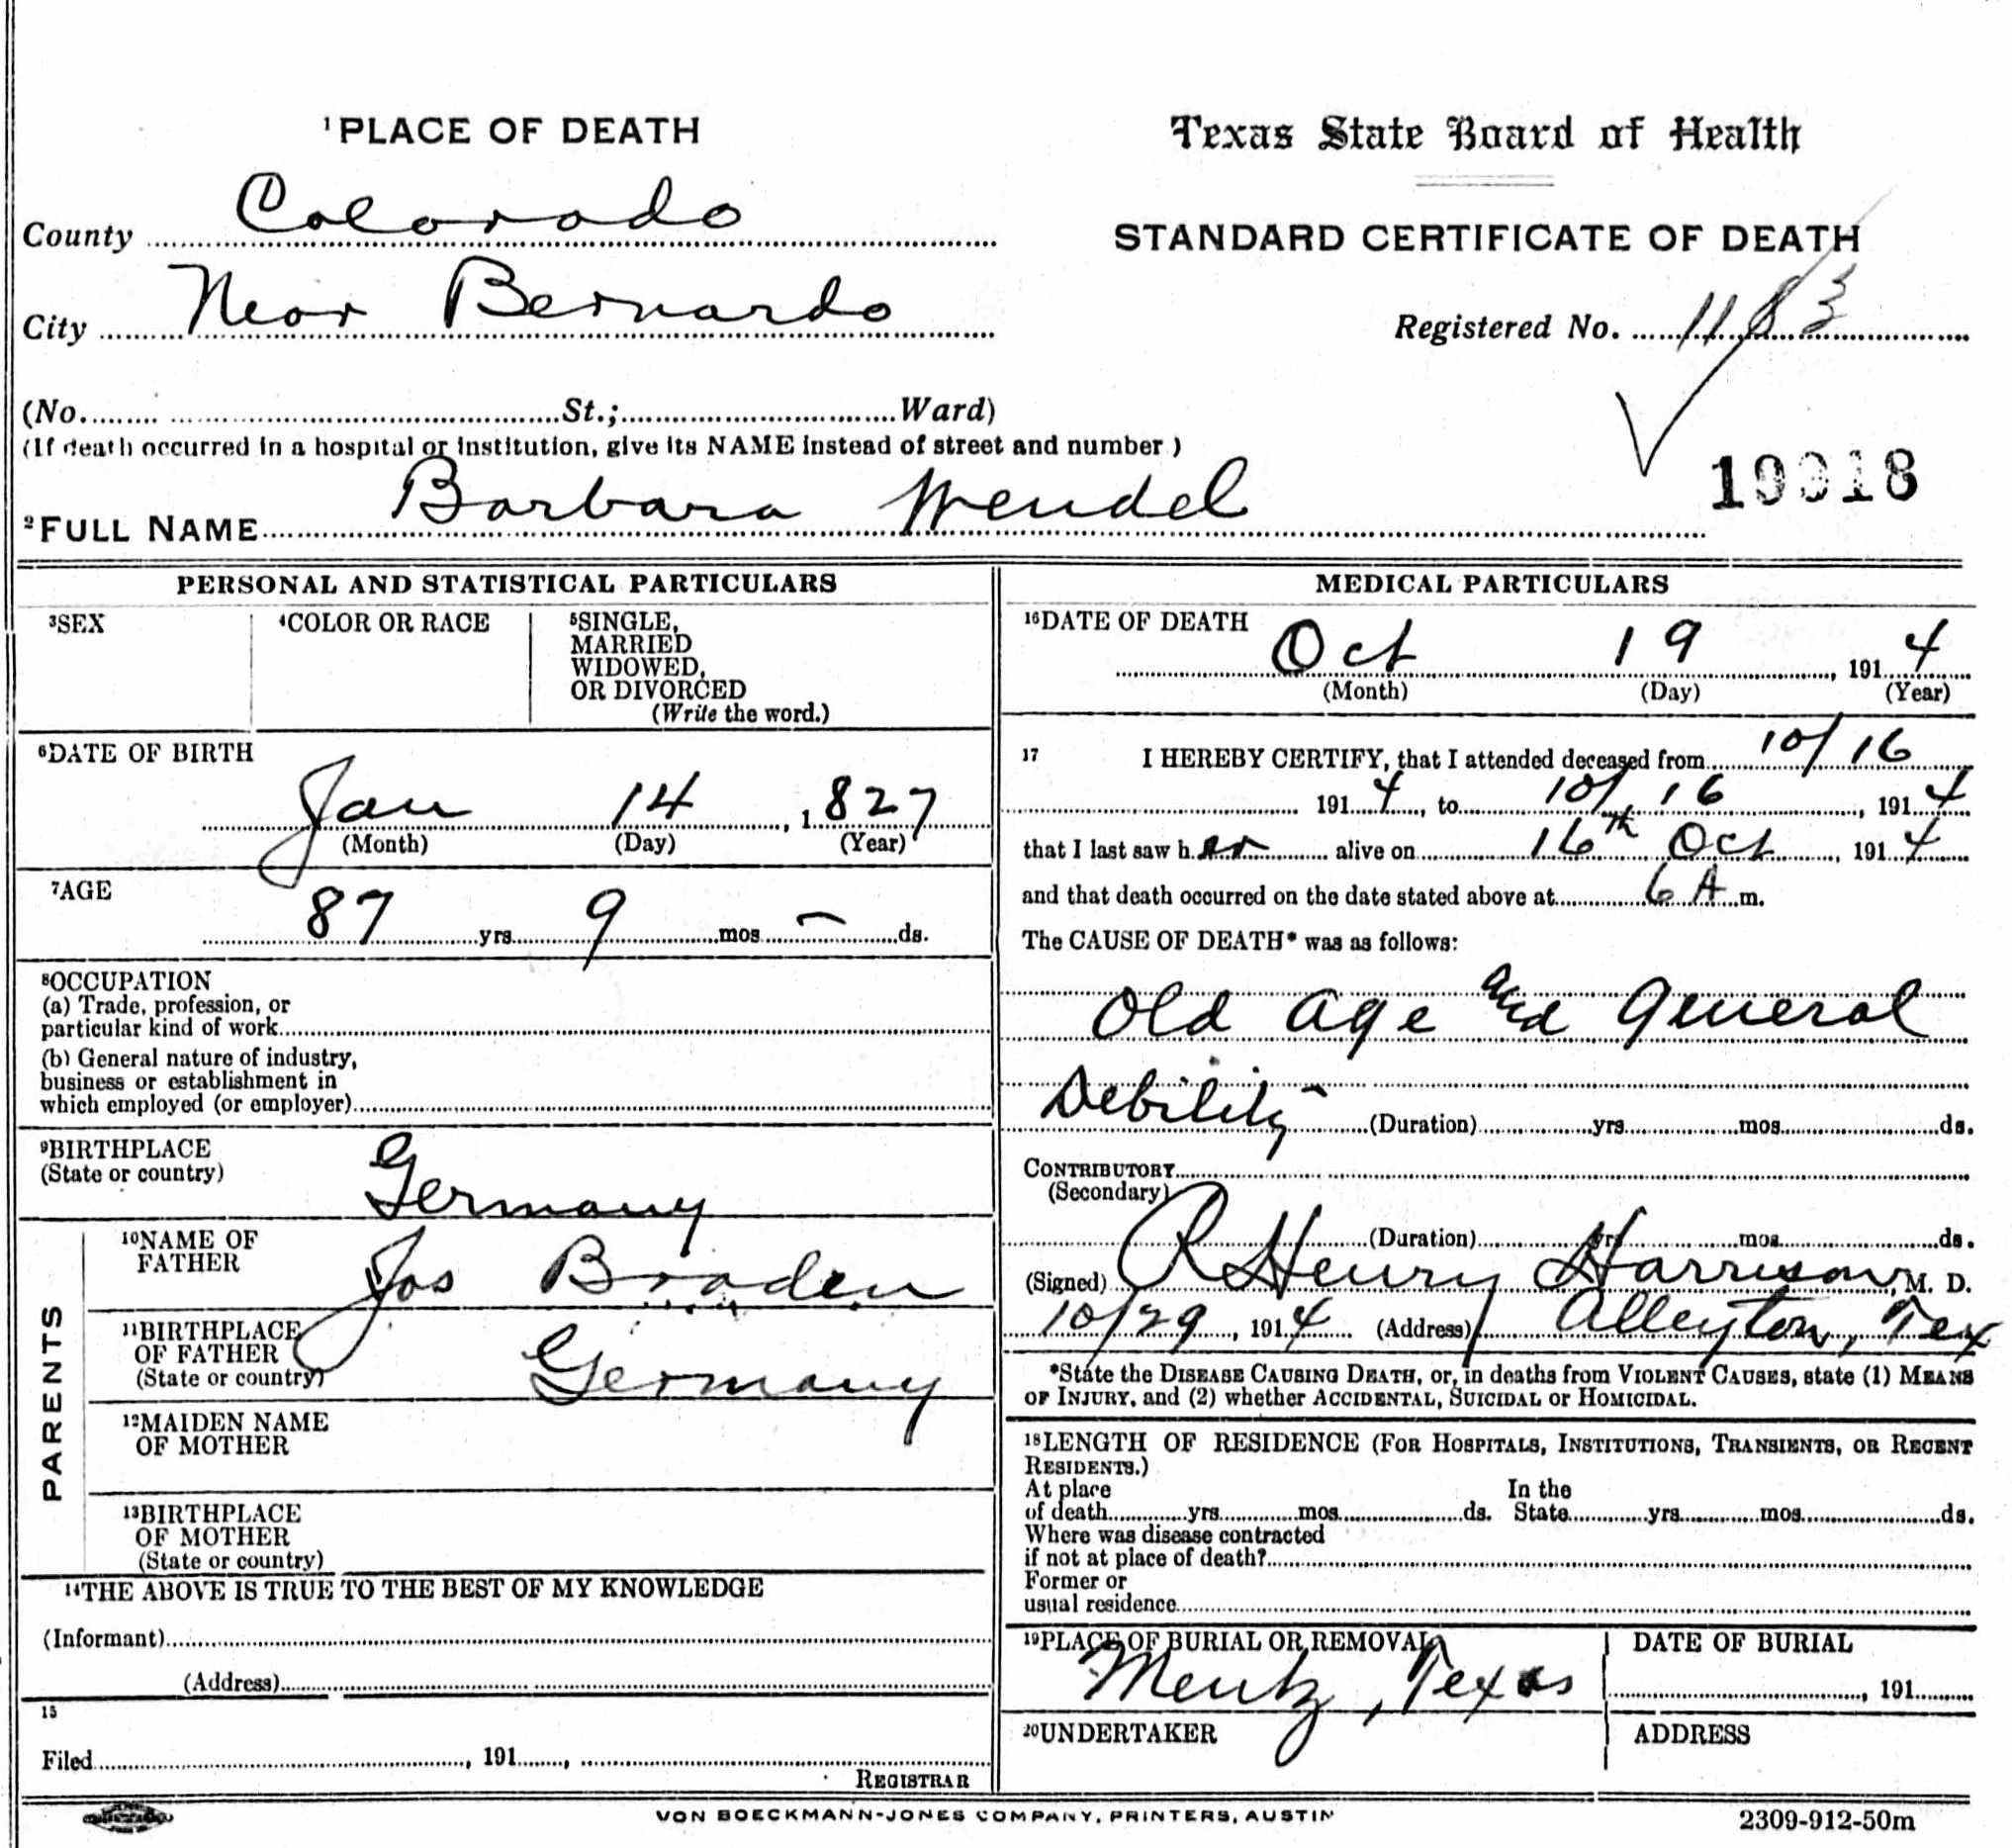 ¹PLACE OF DEATH
Texas State Board of Health
County Colorado
STANDARD CERTIFICATE OF DEATH
City Near Bernardo
Registered No. 1183
(No. St.; Ward)
(If death occurred in a hospital or institution, give its NAME instead of street and number)
19918
²FULL NAME Barbara Wendel
PERSONAL AND STATISTICAL PARTICULARS
³SEX
⁴COLOR OR RACE
⁵SINGLE,
MARRIED
WIDOWED,
OR DIVORCED
(Write the word.)
⁶DATE OF BIRTH
Jan 14, 1827
(Month) (Day) (Year)
⁷AGE
87 yrs. 9 mos. – ds.
⁸OCCUPATION
(a) Trade, profession, or
particular kind of work
(b) General nature of industry,
business or establishment in
which employed (or employer)
⁹BIRTHPLACE
(State or country)
Germany
PARENTS
¹⁰NAME OF
FATHER
Jos Braden
¹¹BIRTHPLACE
OF FATHER
(State or country)
Germany
¹²MAIDEN NAME
OF MOTHER
¹³BIRTHPLACE
OF MOTHER
(State or country)
¹⁴THE ABOVE IS TRUE TO THE BEST OF MY KNOWLEDGE
(Informant)
(Address)
15
Filed , 191 ,
REGISTRAR
MEDICAL PARTICULARS
¹⁶DATE OF DEATH
Oct 19, 1914
(Month) (Day) (Year)
17 I HEREBY CERTIFY, that I attended deceased from 10/16
1914, to 10/16, 1914
that I last saw her alive on 16th Oct, 1914
and that death occurred on the date stated above at 6 A m.
The CAUSE OF DEATH* was as follows:
Old age and General
Debility (Duration) yrs. mos. ds.
CONTRIBUTORY
(Secondary)
(Duration) yrs. mos. ds.
(Signed) R Henry Harrison, M. D.
10/29, 1914 (Address) Alleyton, Tex
*State the DISEASE CAUSING DEATH, or, in deaths from VIOLENT CAUSES, state (1) MEANS
OF INJURY, and (2) whether ACCIDENTAL, SUICIDAL or HOMICIDAL.
¹⁸LENGTH OF RESIDENCE (FOR HOSPITALS, INSTITUTIONS, TRANSIENTS, OR RECENT
RESIDENTS.)
At place In the
of death yrs. mos. ds. State yrs. mos. ds.
Where was disease contracted
if not at place of death?
Former or
usual residence
¹⁹PLACE OF BURIAL OR REMOVAL
Mentz, Texas
DATE OF BURIAL
, 191
²⁰UNDERTAKER
ADDRESS
VON BOECKMANN-JONES COMPANY, PRINTERS, AUSTIN
2309-912-50m